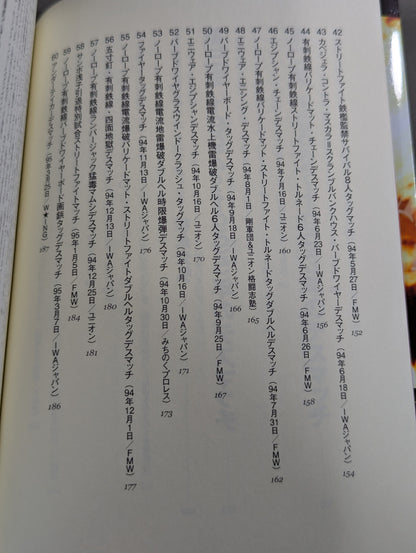 42 ストリートファイト鉄檻監禁サバイバル6人タッグマッチ(94年5月27日/FMW) 152
43 カベジェラ・コントラ・マスカラ=スクランブルバンクハウス・バーブドワイヤーデスマッチ(94年6月18日/IWAジャパン) 154
44 有刺鉄線ストリートファイト・チェーンデスマッチ(94年6月23日/IWAジャパン) 156
45 ノーロープ有刺鉄線バリケードマット・ストリートファイト・トルネード6人タッグデスマッチ(94年6月26日/FMW) 158
46 エジプシャン・チェーンデスマッチ(94年7月16日/ユニオン) 160
47 ノーロープ有刺鉄線バリケードマット・ストリートファイト・トルネードタッグダブルヘルデスマッチ(94年7月31日/FMW) 162
48 エニウェア・エニシング・デスマッチ(94年8月1日 剛軍団&ユニオン・格闘志塾) 165
49 バーブドワイヤーボード・タッグデスマッチ(94年9月18日/IWAジャパン) 166
50 ノーロープ有刺鉄線電流水上機雷爆破ダブルヘル6人タッグデスマッチ(94年9月25日/FMW) 167
51 エニウェア・エニシングデスマッチ(94年10月16日/ユニオン) 170
52 バーブドワイヤグラスウインドークラッシュ・タッグマッチ(94年10月16日/IWAジャパン) 171
53 ノーロープ有刺鉄線電流地雷爆破ダブルヘル時限爆弾デスマッチ(94年10月30日 みちのくプロレス) 173
54 ファイヤータッグデスマッチ(94年11月13日/IWAジャパン) 176
55 ノーロープ有刺鉄線電流爆破バリケードマット・ストリートファイトダブルヘルタッグデスマッチ(94年12月1日/FMW) 177
56 五寸釘・有刺鉄線・四面地獄デスマッチ(94年12月13日/IWAジャパン) 180
57 ノーロープ有刺鉄線ランバージャック猛毒マムシデスマッチ(94年12月25日/ユニオン) 181
58 サッポ浅子引退特別試合ストリートファイトマッチ(95年1月5日/FMW) 184
59 ノーロープ有刺鉄線バーブドワイヤーボード画鋲タッグデスマッチ(95年3月7日/IWAジャパン) 186
60 デスマッチ(95年3月25日 W★ING) 187